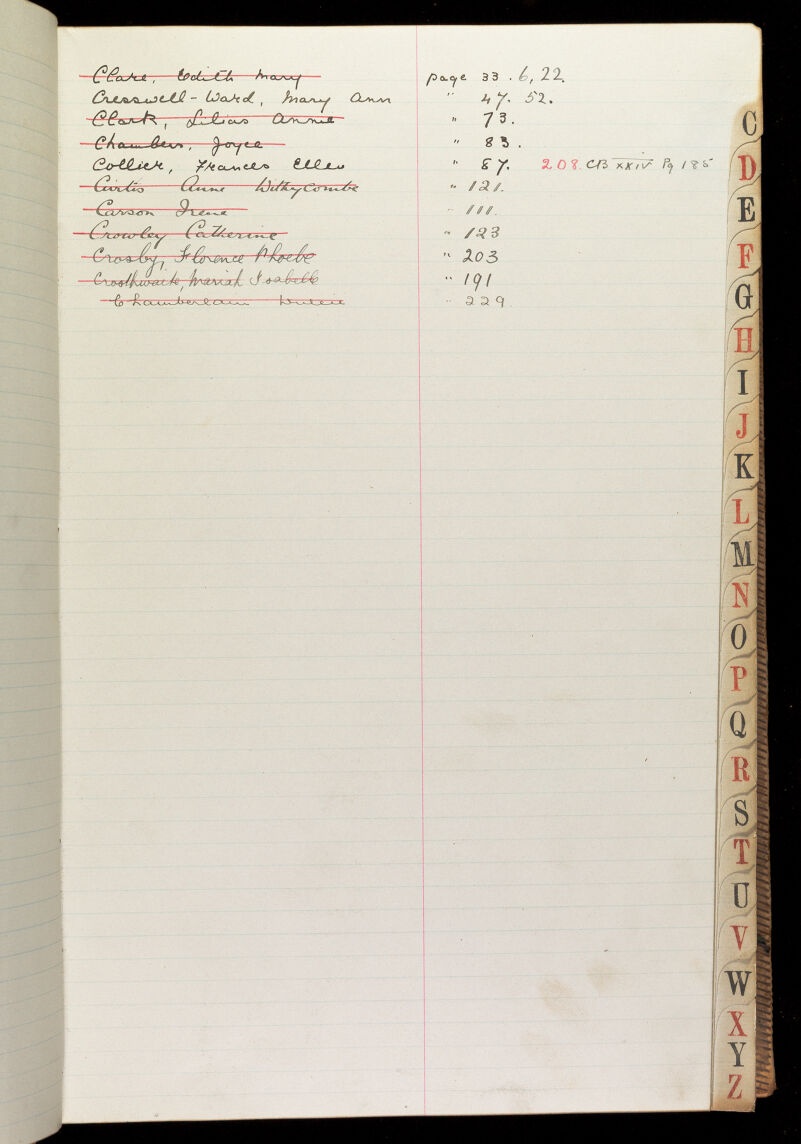 Clare, Edith Mary page 33. 6, 22.
Cresswell-Ward, Mary Ann " 47. 52.
Clark, Lilias Annie " 73.
Chambers, Joyce " 83.
Collier, Frances Ellen " 87. 208. CB XXIV Pg 185
Curtis Anne Withycombe " 121.
Carson Irene " 111.
Crowley Catherine " 123
Crosby, Florence Phoebe " 203
Crosthwaite, Mariah Isabell " 191
Chamberlain " 229.
C
D
E
F
G
H
I
J
K
L
M
N
O
P
Q
R
S
T
U
V
W
X
Y
Z